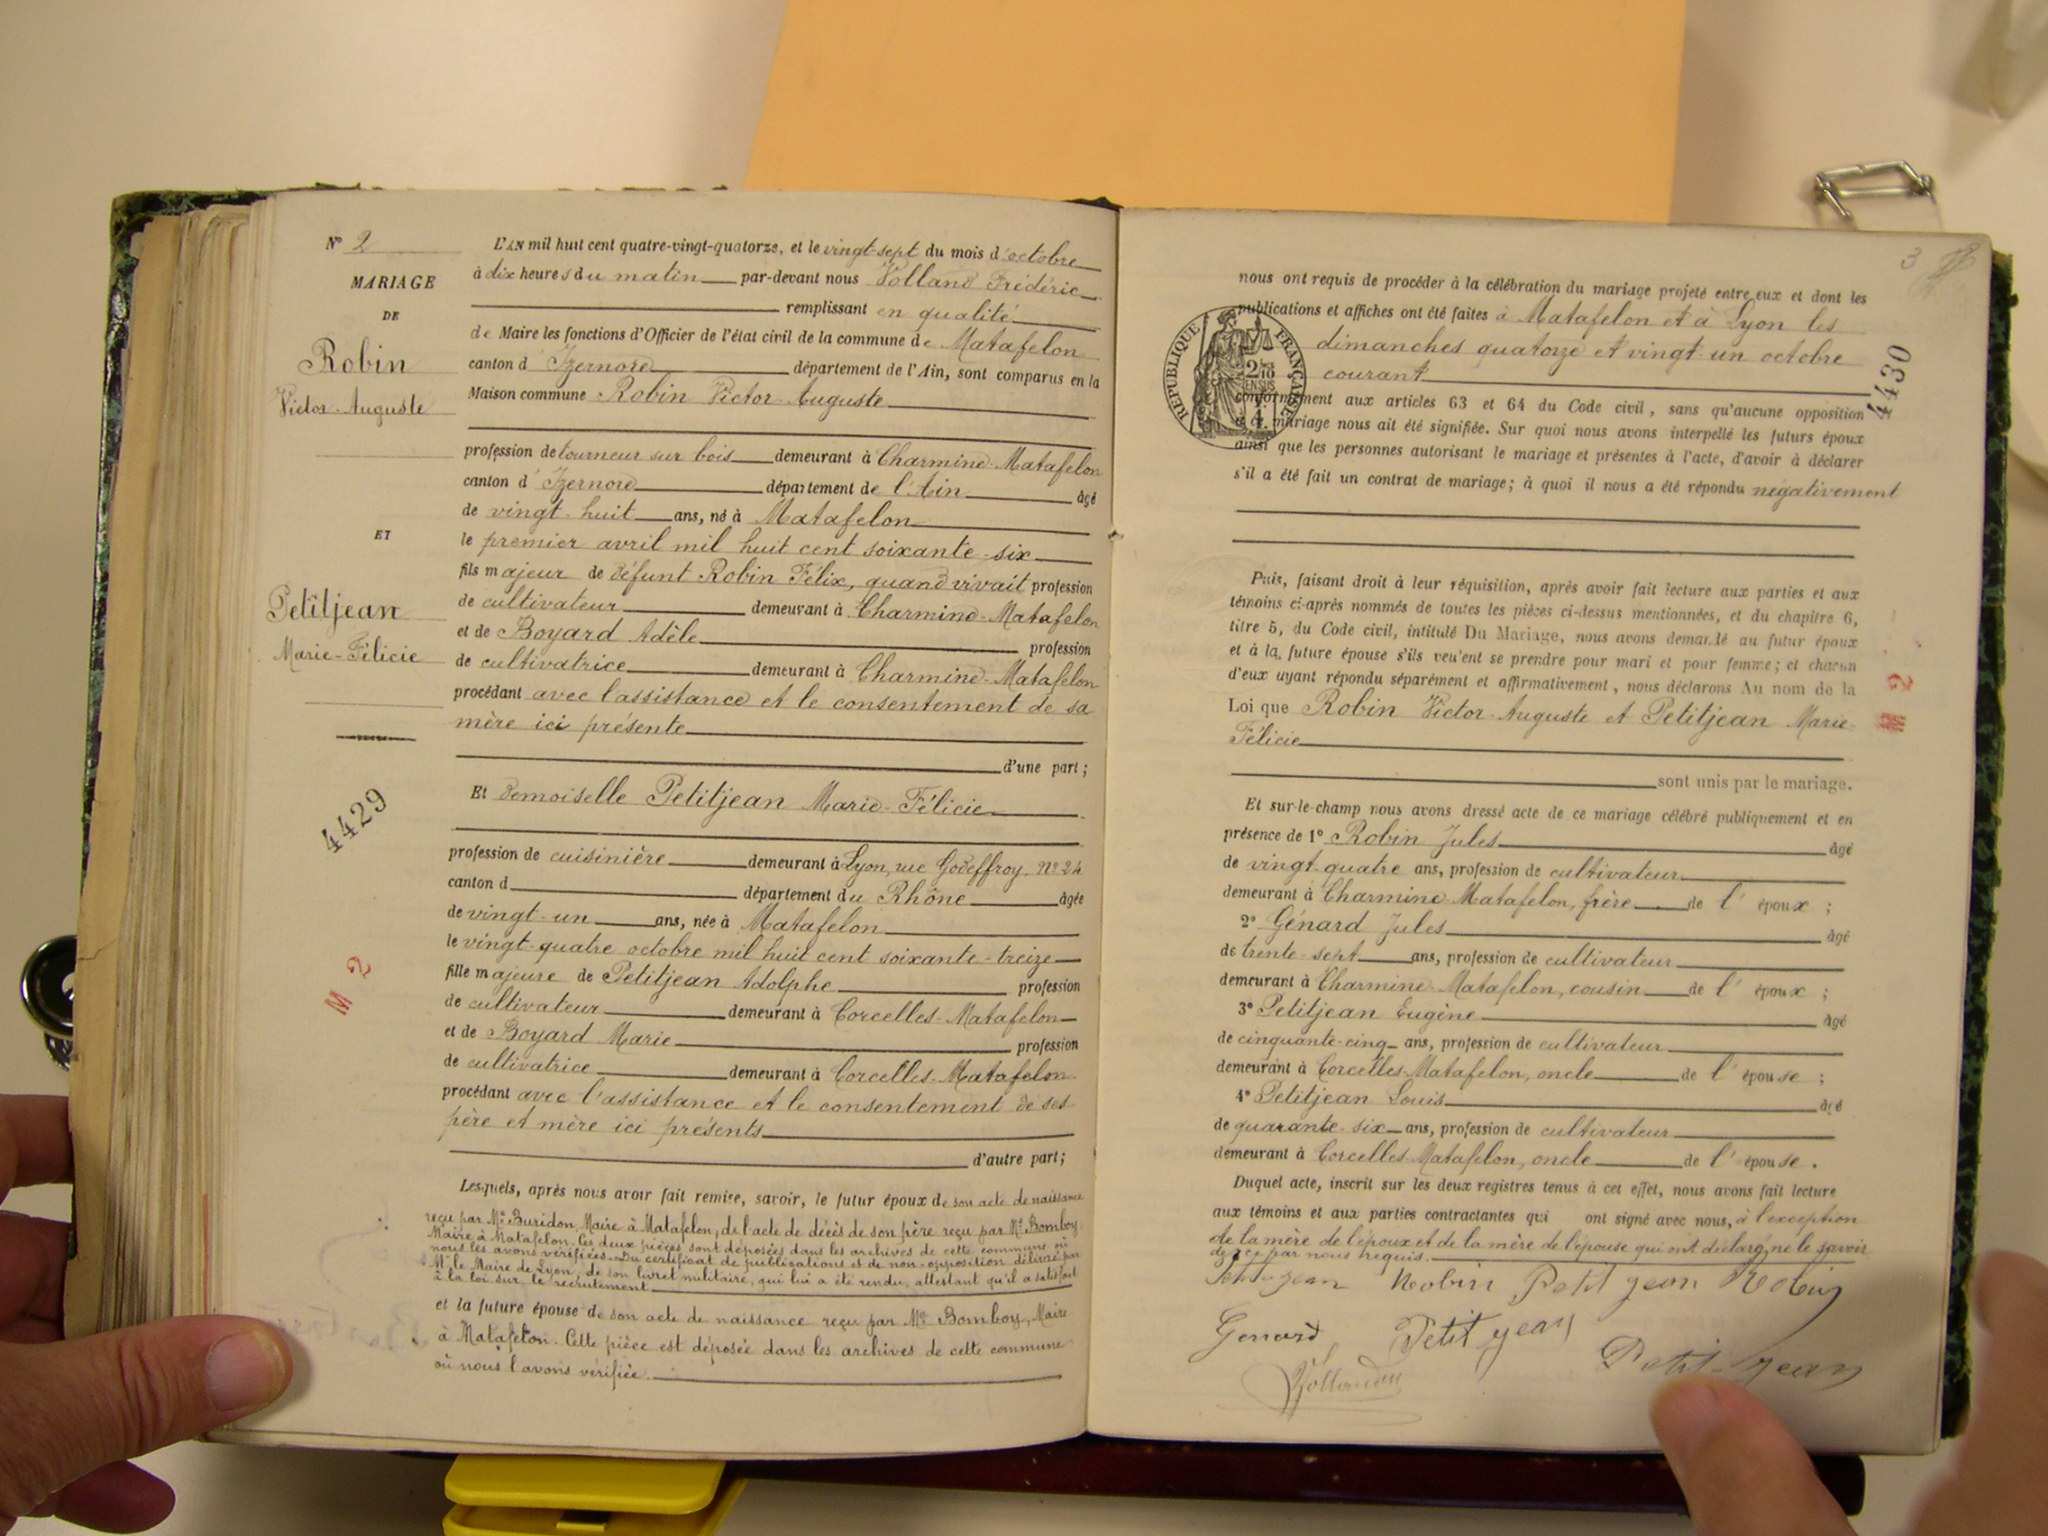 Nº 2
MARIAGE
DE
Robin
Victor-Auguste
ET
Petitjean
Marie-Félicie
4429
M 2
L'AN mil huit cent quatre-vingt-quatorze, et le vingt-sept du mois d'octobre
à dix heures du matin par-devant nous Volland Frédéric
remplissant en qualité
de Maire les fonctions d'Officier de l'état civil de la commune de Matafelon
canton d'Izernore département de l'Ain, sont comparus en la
Maison commune Robin Victor-Auguste
profession de tourneur sur bois demeurant à Charmine-Matafelon
canton d'Izernore département de l'Ain âgé
de vingt-huit ans, né à Matafelon
le premier avril mil huit cent soixante-six
fils majeur de défunt Robin Félix, quand vivait profession
de cultivateur demeurant à Charmine-Matafelon
et de Boyard Adèle profession
de cultivatrice demeurant à Charmine-Matafelon
procédant avec l'assistance et le consentement de sa
mère ici présente
d'une part;
Et demoiselle Petitjean Marie-Félicie
profession de cuisinière demeurant à Lyon, rue Godeffroy, Nº 24
canton d département du Rhône âgée
de vingt-un ans, née à Matafelon
le vingt-quatre octobre mil huit cent soixante-treize
fille majeure de Petitjean Adolphe profession
de cultivateur demeurant à Corcelles-Matafelon
et de Boyard Marie profession
de cultivatrice demeurant à Corcelles-Matafelon
procédant avec l'assistance et le consentement de ses
père et mère ici présents
d'autre part;
Lesquels, après nous avoir fait remise, savoir, le futur époux de son acte de naissance
reçu par Mr Buridon, Maire à Matafelon, de l'acte de décès de son père reçu par Mr Bomboy
Maire à Matafelon. Ces deux pièces sont déposées dans les archives de cette commune où
nous les avons vérifiées. Du certificat de publications et de non-opposition délivré par
Mr le Maire de Lyon, de son livret militaire, qui lui a été rendu, attestant qu'il a satisfait
à la loi sur le recrutement
et la future épouse de son acte de naissance reçu par Mr Bomboy, Maire
à Matafelon. Cette pièce est déposée dans les archives de cette commune
où nous l'avons vérifiée.
3
nous ont requis de procéder à la célébration du mariage projeté entre eux et dont les
publications et affiches ont été faites à Matafelon et à Lyon les
dimanches quatorze et vingt-un octobre
courant
RÉPUBLIQUE FRANÇAISE
4430
conformément aux articles 63 et 64 du Code civil, sans qu'aucune opposition
mariage nous ait été signifiée. Sur quoi nous avons interpellé les futurs époux
ainsi que les personnes autorisant le mariage et présentes à l'acte, d'avoir à déclarer
s'il a été fait un contrat de mariage; à quoi il nous a été répondu négativement
Puis, faisant droit à leur réquisition, après avoir fait lecture aux parties et aux
témoins ci-après nommés de toutes les pièces ci-dessus mentionnées, et du chapitre 6,
titre 5, du Code civil, intitulé Du Mariage, nous avons demandé au futur époux
et à la future épouse s'ils veulent se prendre pour mari et pour femme; et chacun
d'eux ayant répondu séparément et affirmativement, nous déclarons Au nom de la
Loi que Robin Victor-Auguste et Petitjean Marie-
Félicie
M 2
sont unis par le mariage.
Et sur-le-champ nous avons dressé acte de ce mariage célébré publiquement et en
présence de 1º Robin Jules âgé
de vingt-quatre ans, profession de cultivateur
demeurant à Charmine-Matafelon, frère de l'époux ;
2º Génard Jules âgé
de trente-sept ans, profession de cultivateur
demeurant à Charmine-Matafelon, cousin de l'époux ;
3º Petitjean Eugène âgé
de cinquante-cinq ans, profession de cultivateur
demeurant à Corcelles-Matafelon, oncle de l'épouse ;
4º Petitjean Louis âgé
de quarante-six ans, profession de cultivateur
demeurant à Corcelles-Matafelon, oncle de l'épouse.
Duquel acte, inscrit sur les deux registres tenus à cet effet, nous avons fait lecture
aux témoins et aux parties contractantes qui ont signé avec nous, à l'exception
de la mère de l'époux et de la mère de l'épouse qui ont déclaré ne le savoir
de ce par nous requis.
Robin Petit jean Robin
Genard Petit jean
Petit-jean
Volland